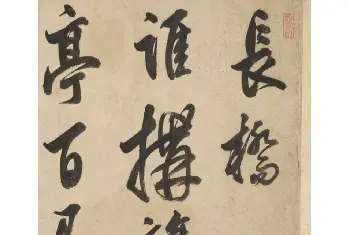 長橋
誰構
亭百